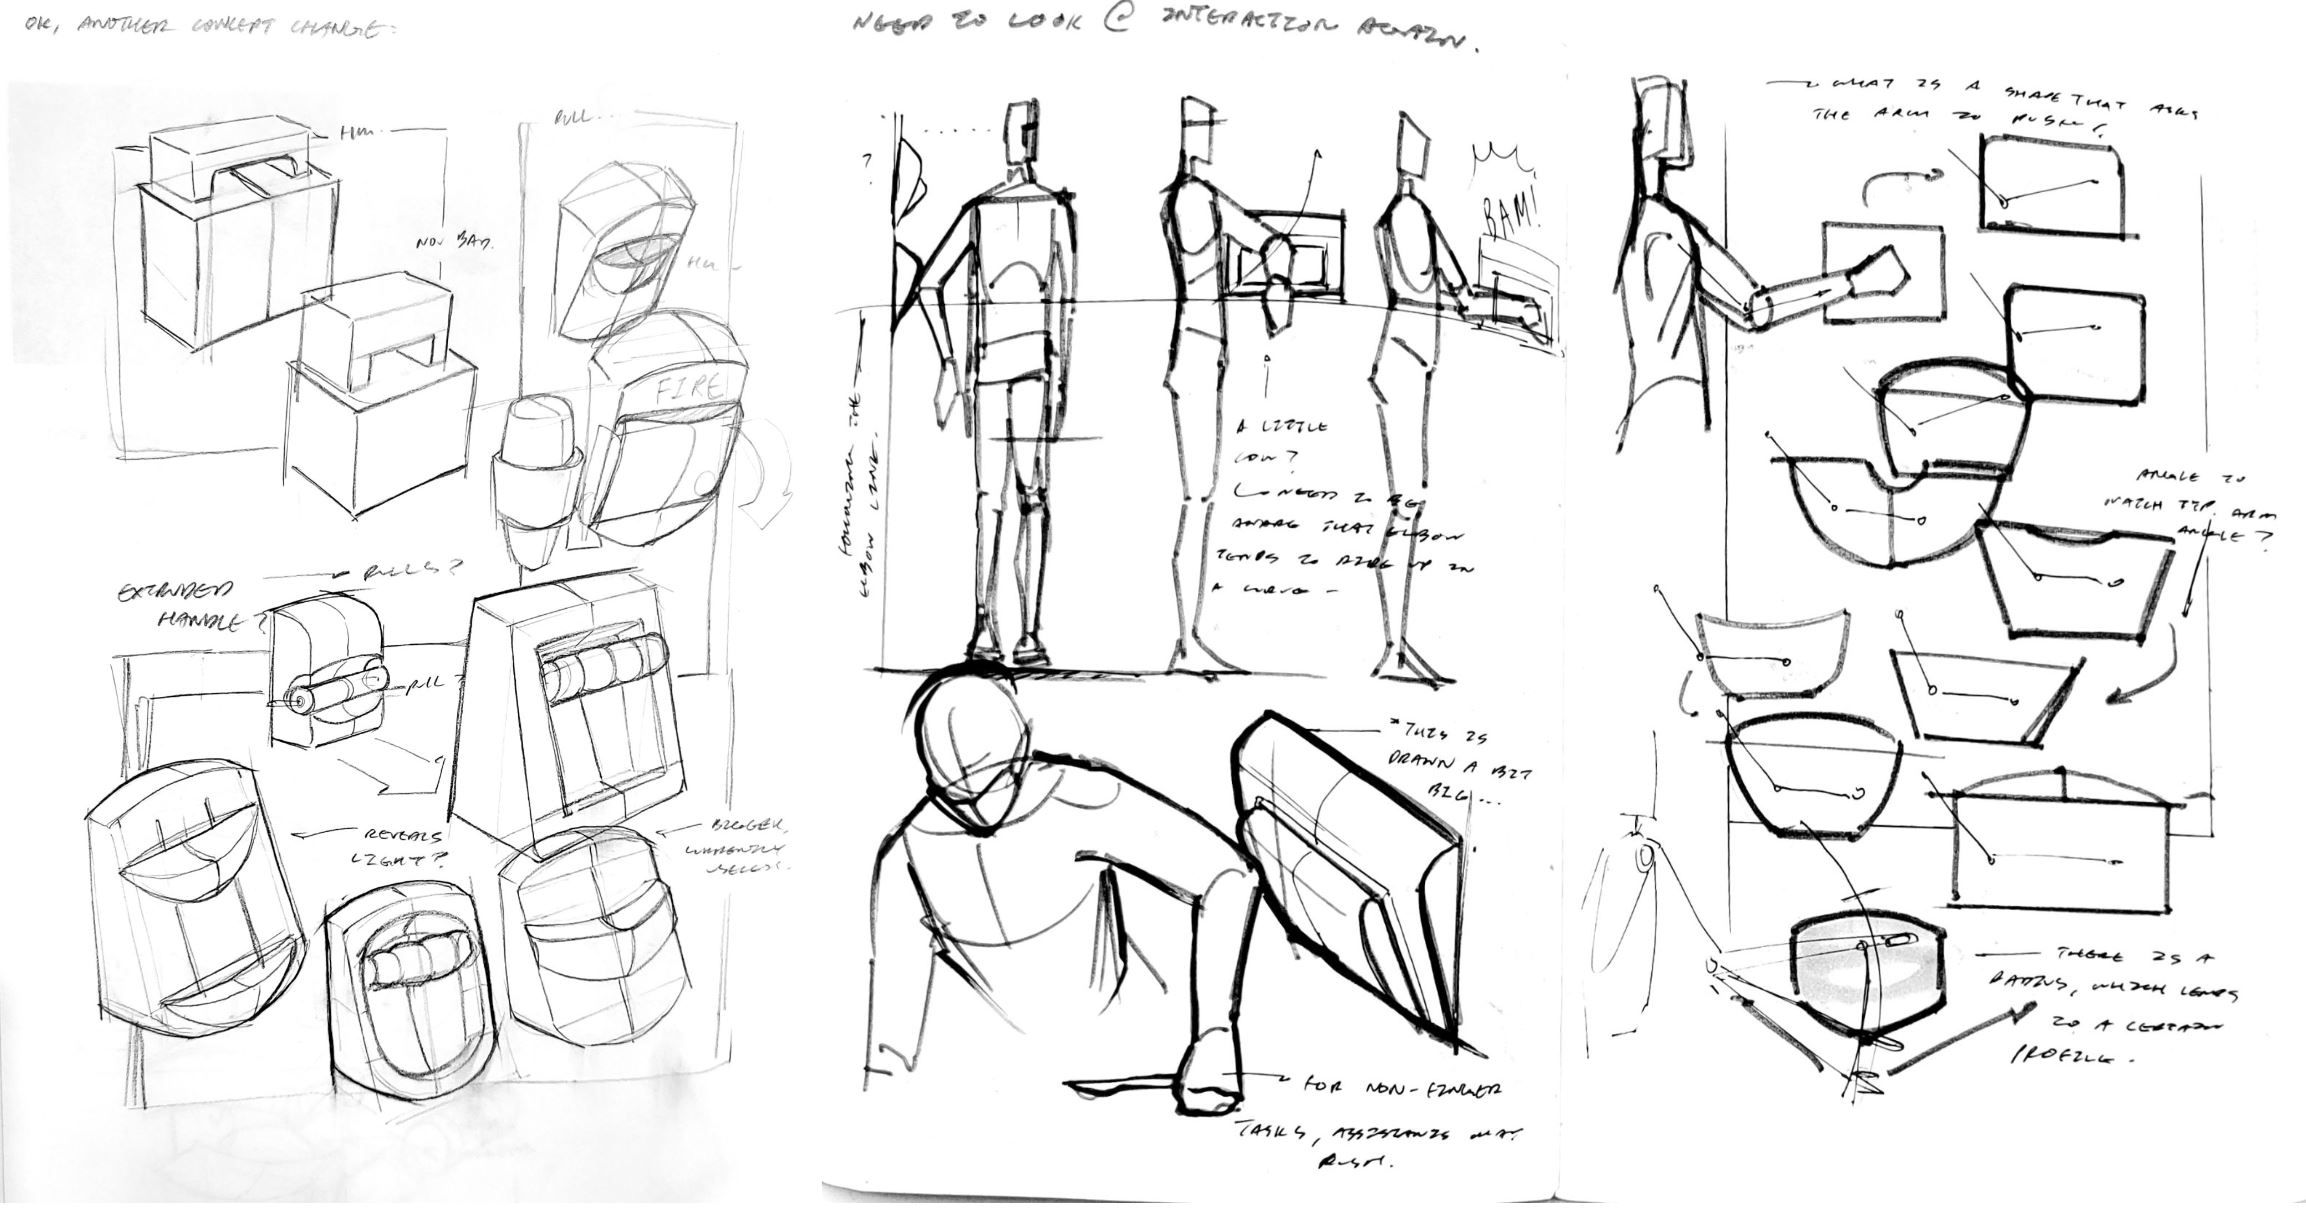 OK, ANOTHER CONCEPT CHANGE:
HM.
NOT BAD.
PULL...
HM -
FIRE
EXTRUDED
HANDLE?
PULLS?
PULL?
REVEALS
LIGHT?
BIGGER,
NEED TO LOOK @ INTERACTION AGAIN.
?
BAM!
FOLLOWING THE
ELBOW LINE.
A LITTLE
LOW?
NEED TO BE
AWARE THAT ELBOW
TENDS TO RIDE UP IN
A CURVE -
*THIS IS
DRAWN A BIT
BIG...
FOR NON-FINGER
TASKS, MAY
PUSH.
WHAT IS A SHAPE THAT ASKS
THE ARM TO PUSH?
ANGLE TO
MATCH TYP. ARM
ANGLE?
THERE IS A
RADIUS, WHICH LENDS
TO A CERTAIN
PROFILE.